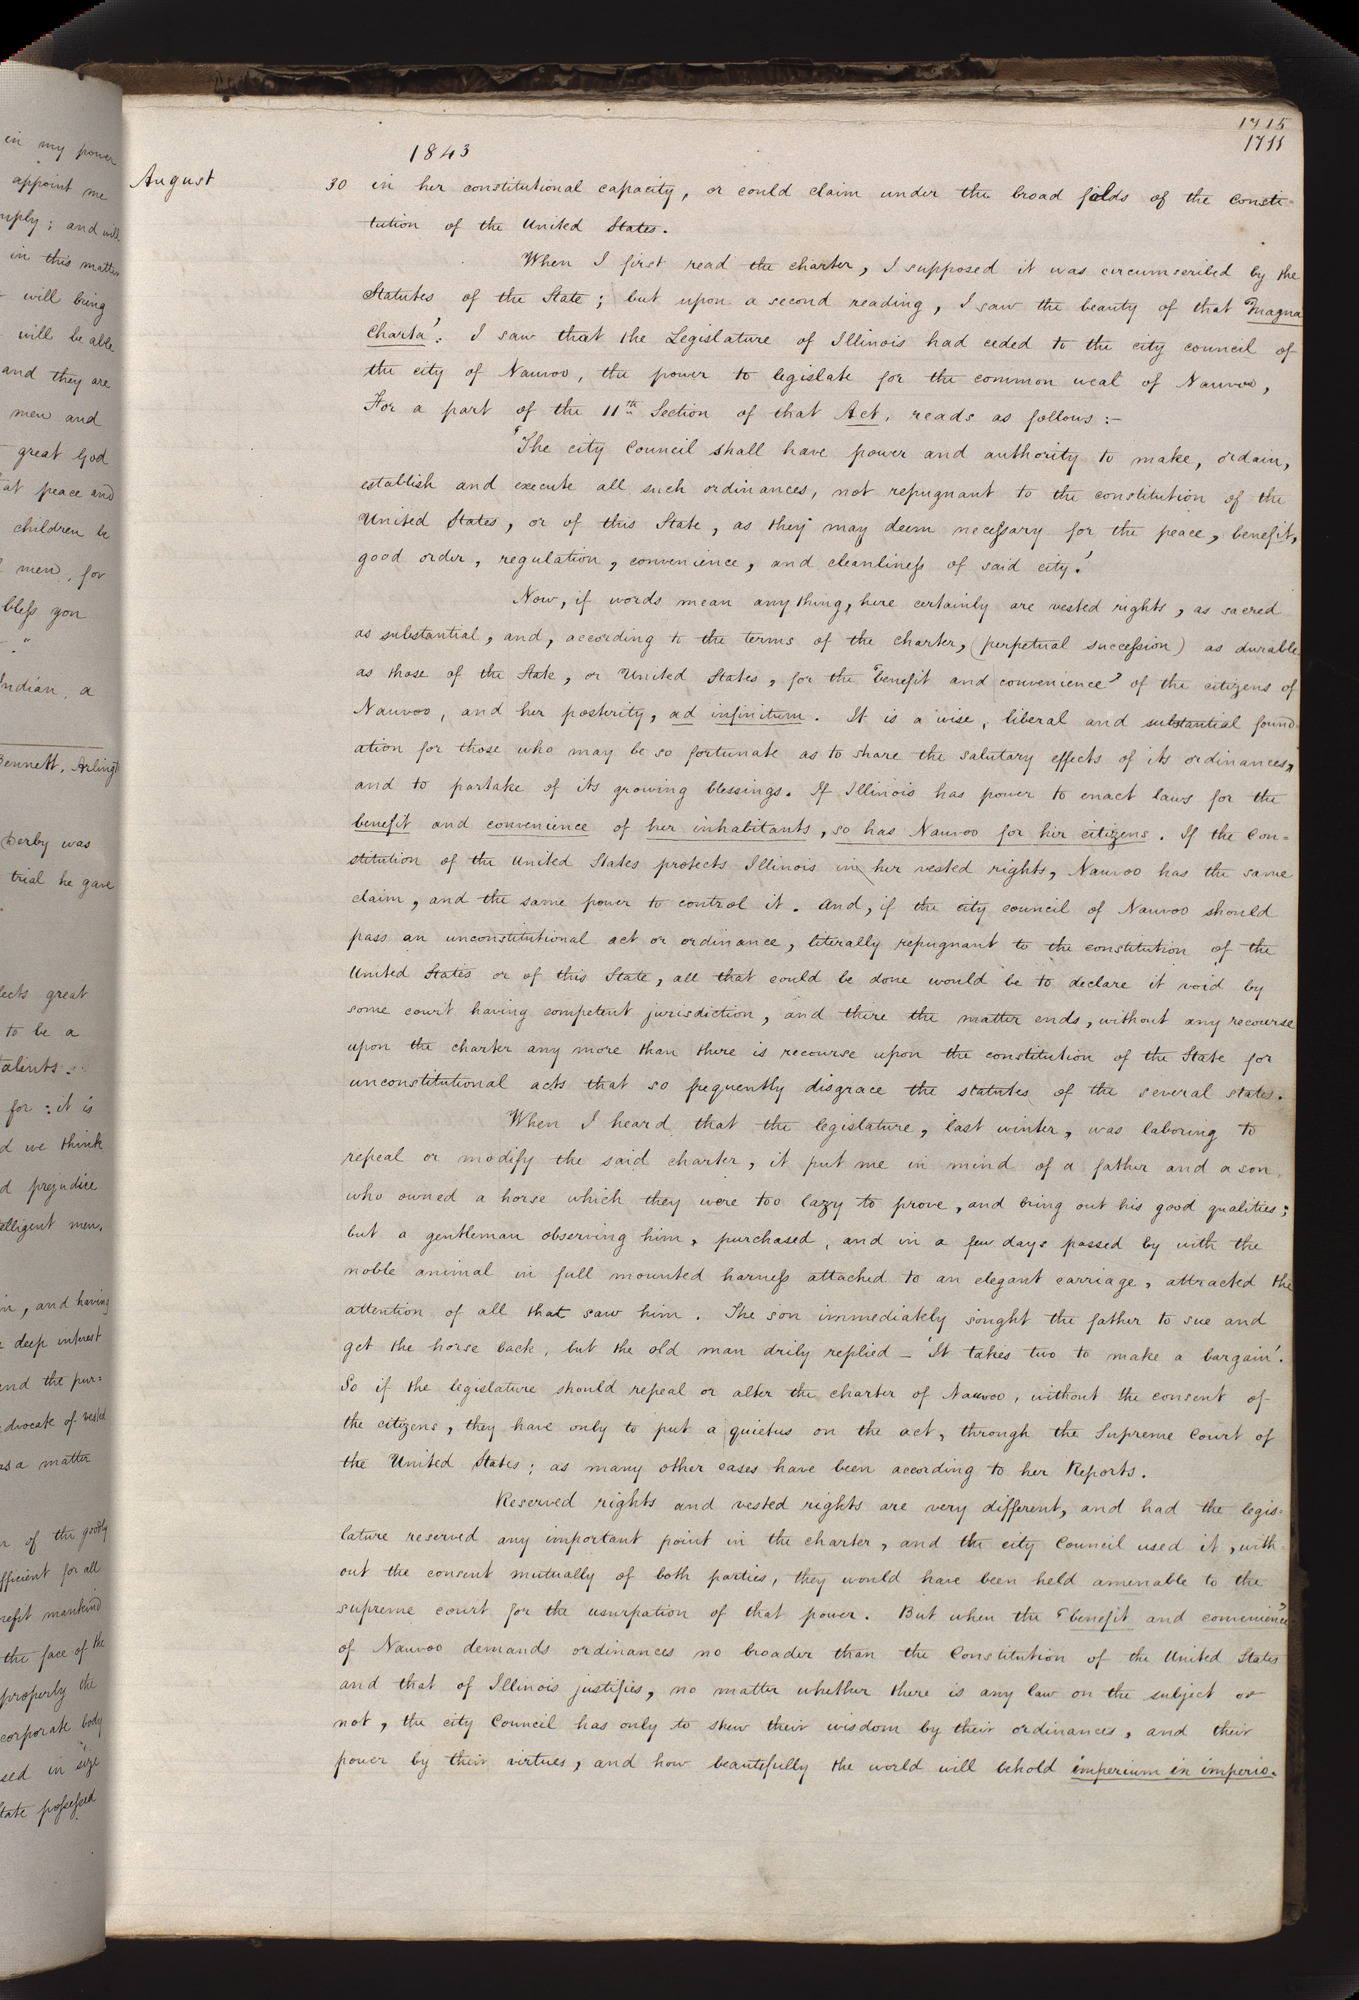 1715
1711
1843
August
30 in her constitutional capacity, or could claim under the broad folds of the Consti-
tution of the United States.
When I first read the charter, I supposed it was circumscribed by the
Statutes of the State; but upon a second reading, I saw the beauty of that 'Magna
Charta'. I saw that the Legislature of Illinois had ceded to the city council of
the city of Nauvoo, the power to legislate for the common weal of Nauvoo,
For a part of the 11th Section of that Act, reads as follows:—
'The city Council shall have power and authority to make, ordain,
establish and execute all such ordinances, not repugnant to the constitution of the
United States, or of this State, as they may deem necessary for the peace, benefit,
good order, regulation, convenience, and cleanliness of said city.'
Now, if words mean any thing, here certainly are vested rights, as sacred
as substantial, and, according to the terms of the charter, (perpetual succession) as durable
as those of the State, or United States, for the 'benefit and convenience' of the citizens of
Nauvoo, and her posterity, ad infinitum. It is a wise, liberal and substantial found-
ation for those who may be so fortunate as to share the salutary effects of its ordinances,
and to partake of its growing blessings. If Illinois has power to enact laws for the
benefit and convenience of her inhabitants, so has Nauvoo for her citizens. If the Con=
stitution of the United States protects Illinois in her vested rights, Nauvoo has the same
claim, and the same power to control it. And, if the city council of Nauvoo should
pass an unconstitutional act or ordinance, literally repugnant to the constitution of the
United States or of this State, all that could be done would be to declare it void by
some court having competent jurisdiction, and there the matter ends, without any recourse
upon the charter any more than there is recourse upon the constitution of the State for
unconstitutional acts that so frequently disgrace the statutes of the several states.
When I heard that the legislature, last winter, was laboring to
repeal or modify the said charter, it put me in mind of a father and a son,
who owned a horse which they were too lazy to prove, and bring out his good qualities;
but a gentleman observing him, purchased, and in a few days passed by with the
noble animal in full mounted harness attached to an elegant carriage, attracted the
attention of all that saw him. The son immediately sought the father to sue and
get the horse back, but the old man drily replied — 'It takes two to make a bargain'.
So if the legislature should repeal or alter the charter of Nauvoo, without the consent of
the citizens, they have only to put a quietus on the act, through the Supreme Court of
the United States; as many other cases have been according to her Reports.
Reserved rights and vested rights are very different, and had the legis=
lature reserved any important point in the charter, and the city Council used it, with-
out the consent mutually of both parties, they would have been held amenable to the
supreme court for the usurpation of that power. But when the 'benefit and convenience'
of Nauvoo demands ordinances no broader than the Constitution of the United States
and that of Illinois justifies, no matter whether there is any law on the subject or
not, the city Council has only to shew their wisdom by their ordinances, and their
power by their virtues, and how beautifully the world will behold imperium in imperio.
in my power
appoint me
and will
in this matter
will bring
will be able
and they are
men and
great God
at peace and
children be
men, for
bless you
Indian, a
Bennett, Arling
Derby was
trial he gave
great
to be a
talents.
for: it is
we think
prejudice
men,
and having
deep interest
and the pur=
of vested
as a matter
of the goodly
for all
mankind
the face of the
property the
corporate body
in size
State possessed